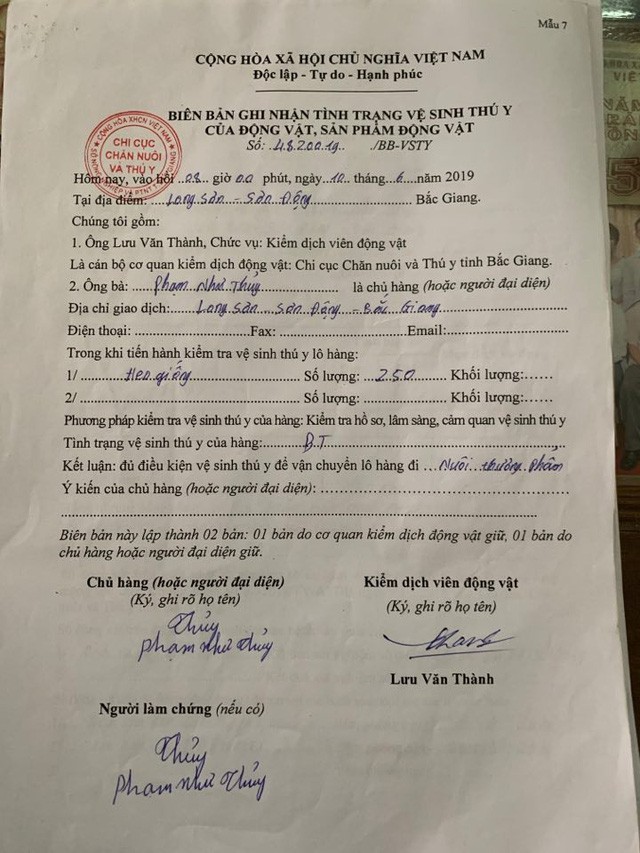 Mẫu 7
CỘNG HÒA XÃ HỘI CHỦ NGHĨA VIỆT NAM
Độc lập - Tự do - Hạnh phúc
BIÊN BẢN GHI NHẬN TÌNH TRẠNG VỆ SINH THÚ Y
CỦA ĐỘNG VẬT, SẢN PHẨM ĐỘNG VẬT
Số: ..48.200.19.. ./BB-VSTY
CỘNG HÒA XHCN VIỆT NAM
CHI CỤC
CHĂN NUÔI
VÀ THÚ Y
Hôm nay, vào hồi ..08.. giờ 00 phút, ngày .10.. tháng ..6.. năm 2019
Tại địa điểm: ......Long Sơn - Sơn Động.......... Bắc Giang.
Chúng tôi gồm:
1. Ông Lưu Văn Thành, Chức vụ: Kiểm dịch viên động vật
Là cán bộ cơ quan kiểm dịch động vật: Chi cục Chăn nuôi và Thú y tỉnh Bắc Giang.
2. Ông bà: .....Phạm Như Thủy............ là chủ hàng (hoặc người đại diện)
Địa chỉ giao dịch: .....Long Sơn Sơn Động - Bắc Giang..........
Điện thoại: ....................Fax: .......................Email:........................
Trong khi tiến hành kiểm tra vệ sinh thú y lô hàng:
1/ ........Heo giống.................. Số lượng: ...250......... Khối lượng:......
2/ .................................... Số lượng: ................... Khối lượng:......
Phương pháp kiểm tra vệ sinh thú y của hàng: Kiểm tra hồ sơ, lâm sàng, cảm quan vệ sinh thú y
Tình trạng vệ sinh thú y của hàng:........B.T..............................
Kết luận: đủ điều kiện vệ sinh thú y để vận chuyển lô hàng đi ...Nuôi thương phẩm
Ý kiến của chủ hàng (hoặc người đại diện): ........................................
Biên bản này lập thành 02 bản: 01 bản do cơ quan kiểm dịch động vật giữ, 01 bản do
chủ hàng hoặc người đại diện giữ.
Chủ hàng (hoặc người đại diện)
(Ký, ghi rõ họ tên)
Thủy
Phạm Như Thủy
Kiểm dịch viên động vật
(Ký, ghi rõ họ tên)
Lưu Văn Thành
Người làm chứng (nếu có)
Thủy
Phạm Như Thủy